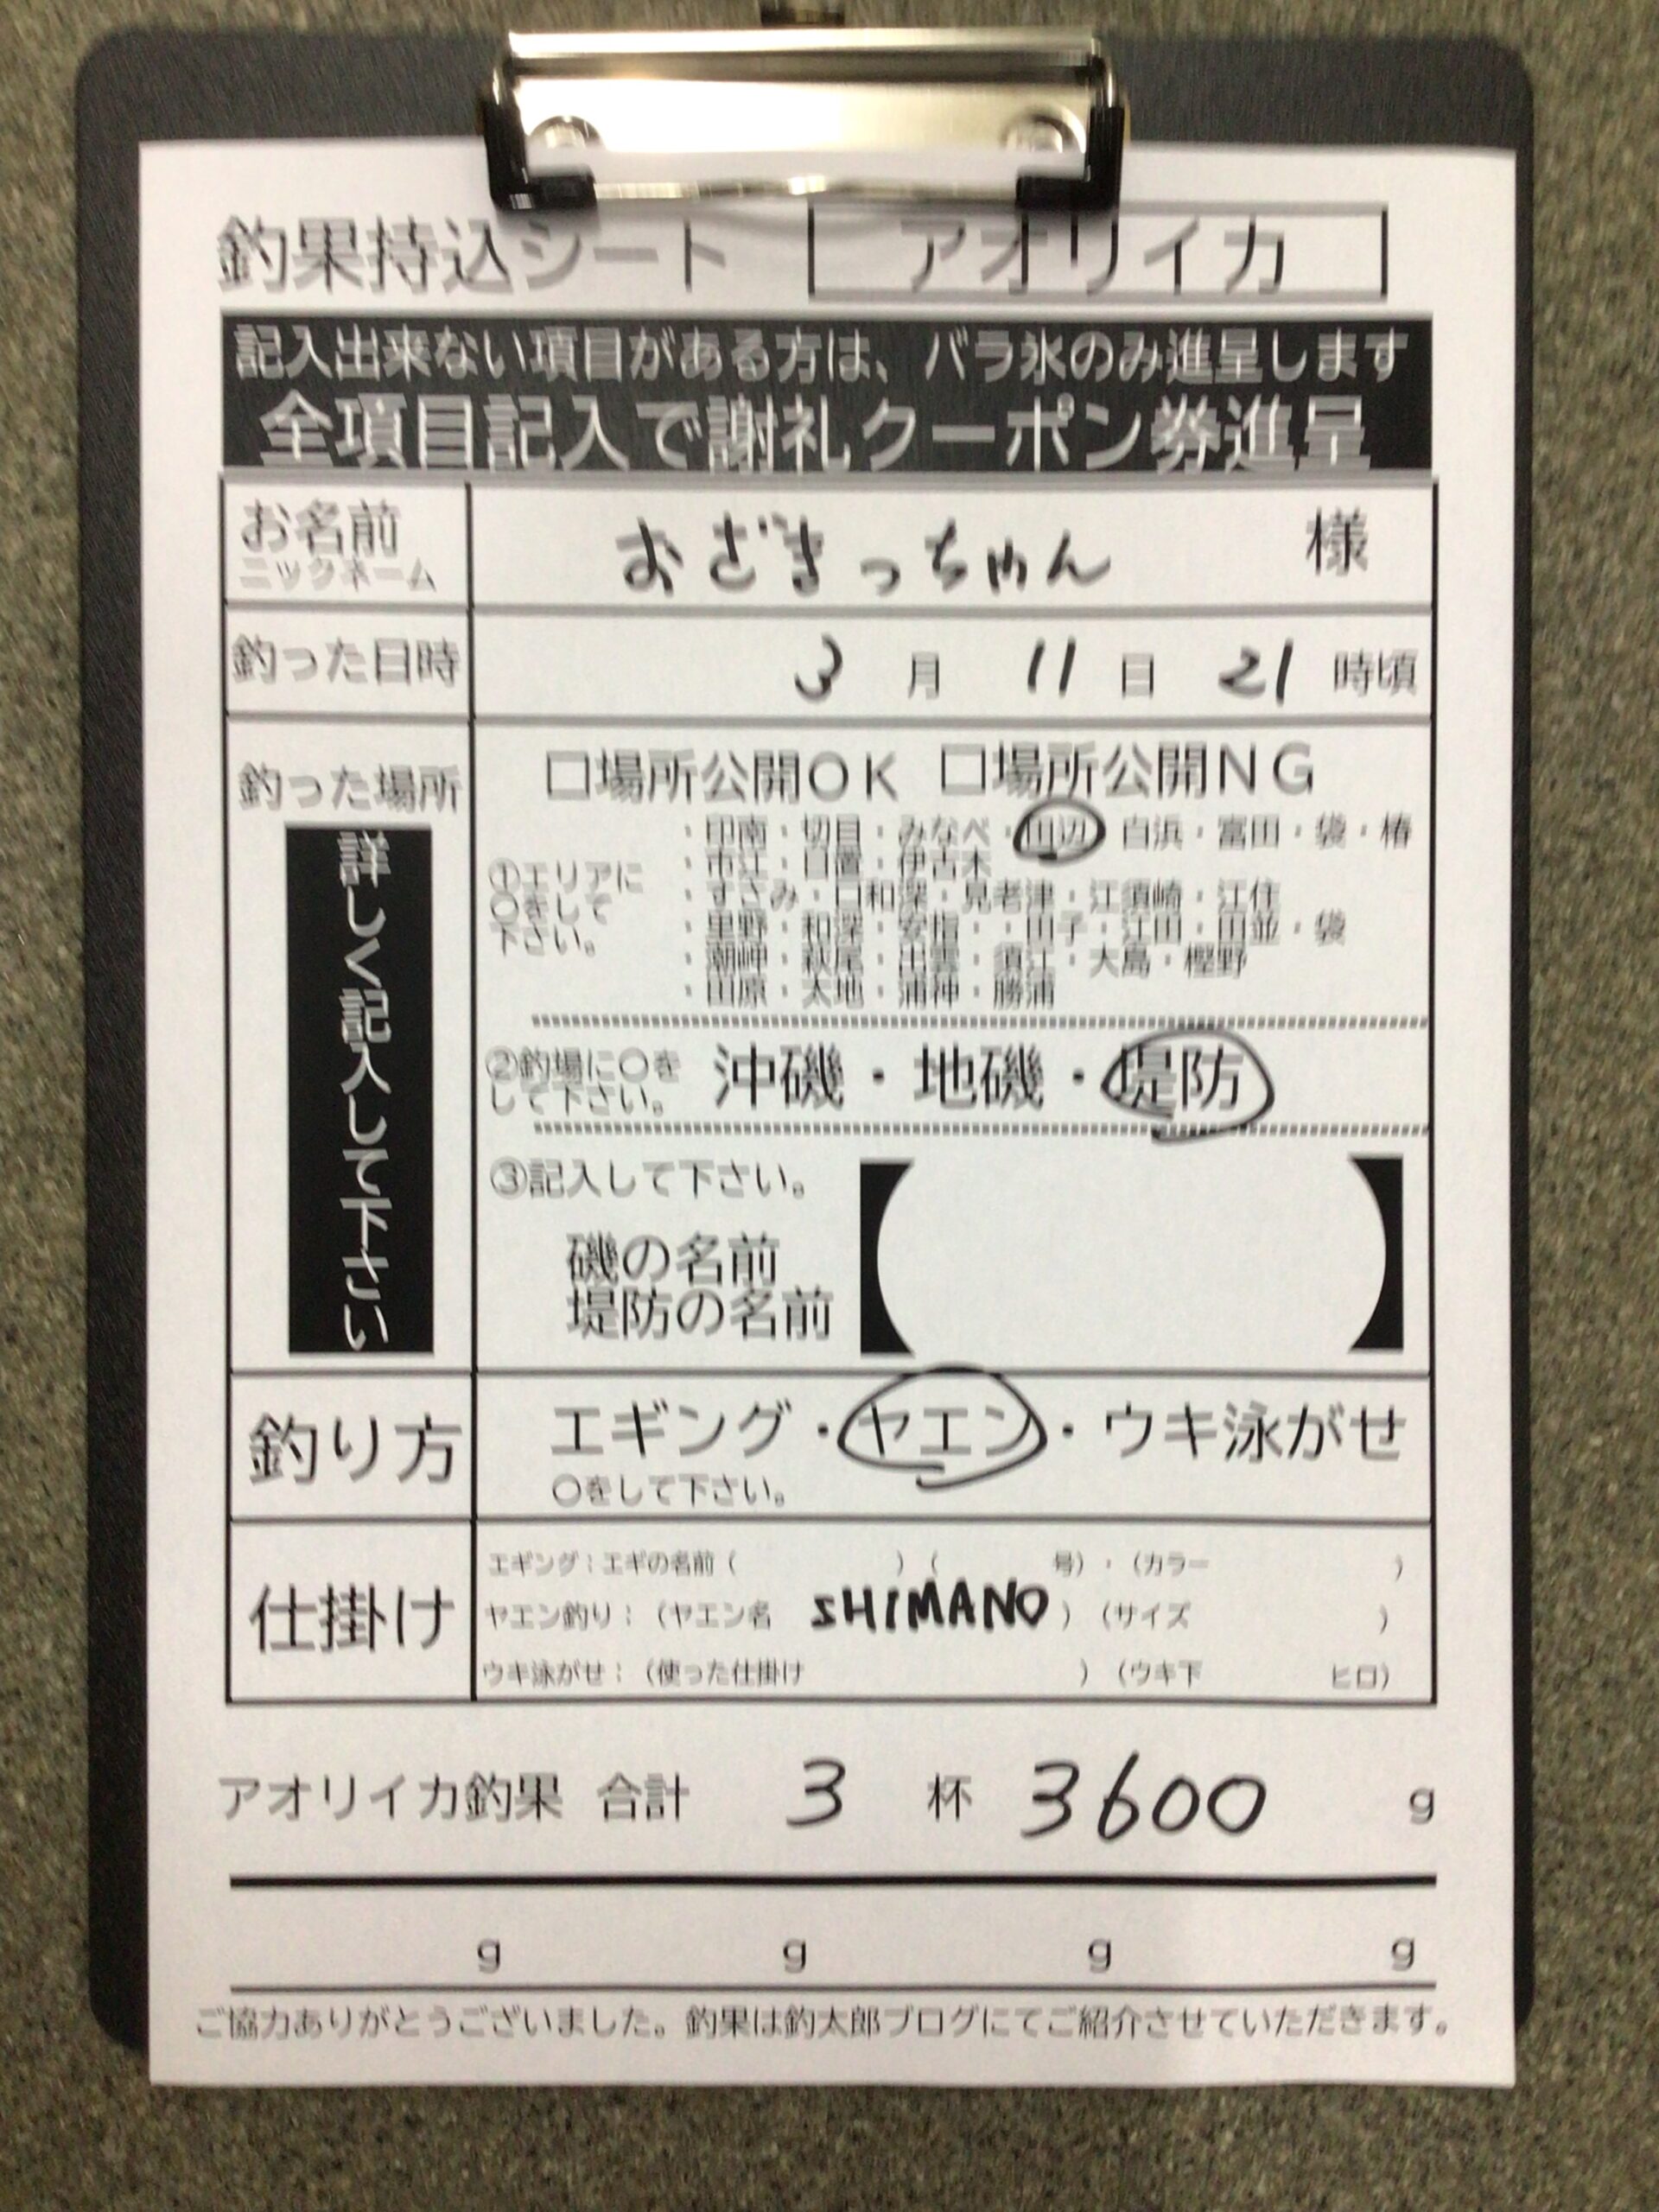 釣果持込シート アオリイカ
記入出来ない項目がある方は、バラ氷のみ進呈します
全項目記入で謝礼クーポン券進呈
お名前
ニックネーム
おざきっちゃん 様
釣った日時 3 月 11 日 21 時頃
釣った場所
詳しく記入して下さい
□場所公開OK □場所公開NG
①エリアに
〇をして
下さい。
・印南・切目・みなべ・田辺・白浜・富田・袋・椿
・市江・日置・伊古木
・すさみ・口和深・見老津・江須崎・江住
・里野・和深・安指・・田子・江田・田並・袋
・潮岬・萩尾・出雲・須江・大島・樫野
・田原・太地・浦神・勝浦
②釣場に〇を
して下さい。
沖磯・地磯・堤防
③記入して下さい。
磯の名前
堤防の名前
【 】
釣り方 エギング・ヤエン・ウキ泳がせ
〇をして下さい。
仕掛け
エギング：エギの名前（ ）（ 号）・（カラー ）
ヤエン釣り：（ヤエン名 SHIMANO ）（サイズ ）
ウキ泳がせ：（使った仕掛け ）（ウキ下 ヒロ）
アオリイカ釣果 合計 3 杯 3600 g
g g g g
ご協力ありがとうございました。釣果は釣太郎ブログにてご紹介させていただきます。